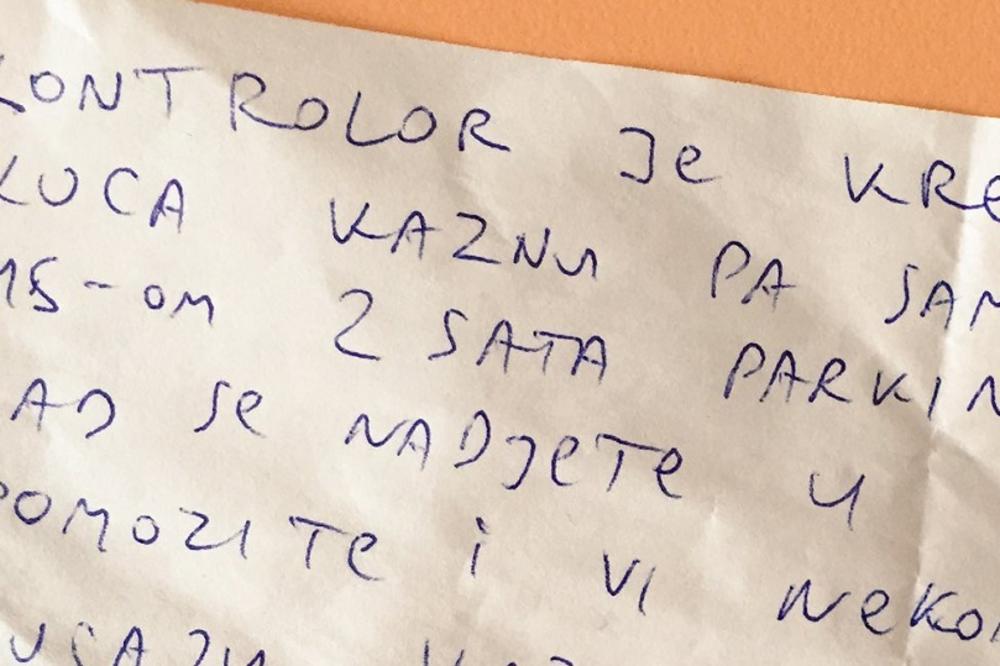 KONTROLOR Je KRe
KUCA KAZNU PA SAM
15-om 2 SATA PARKIN
AD Se NADJeTe U
POMOZITe i VI NeKom